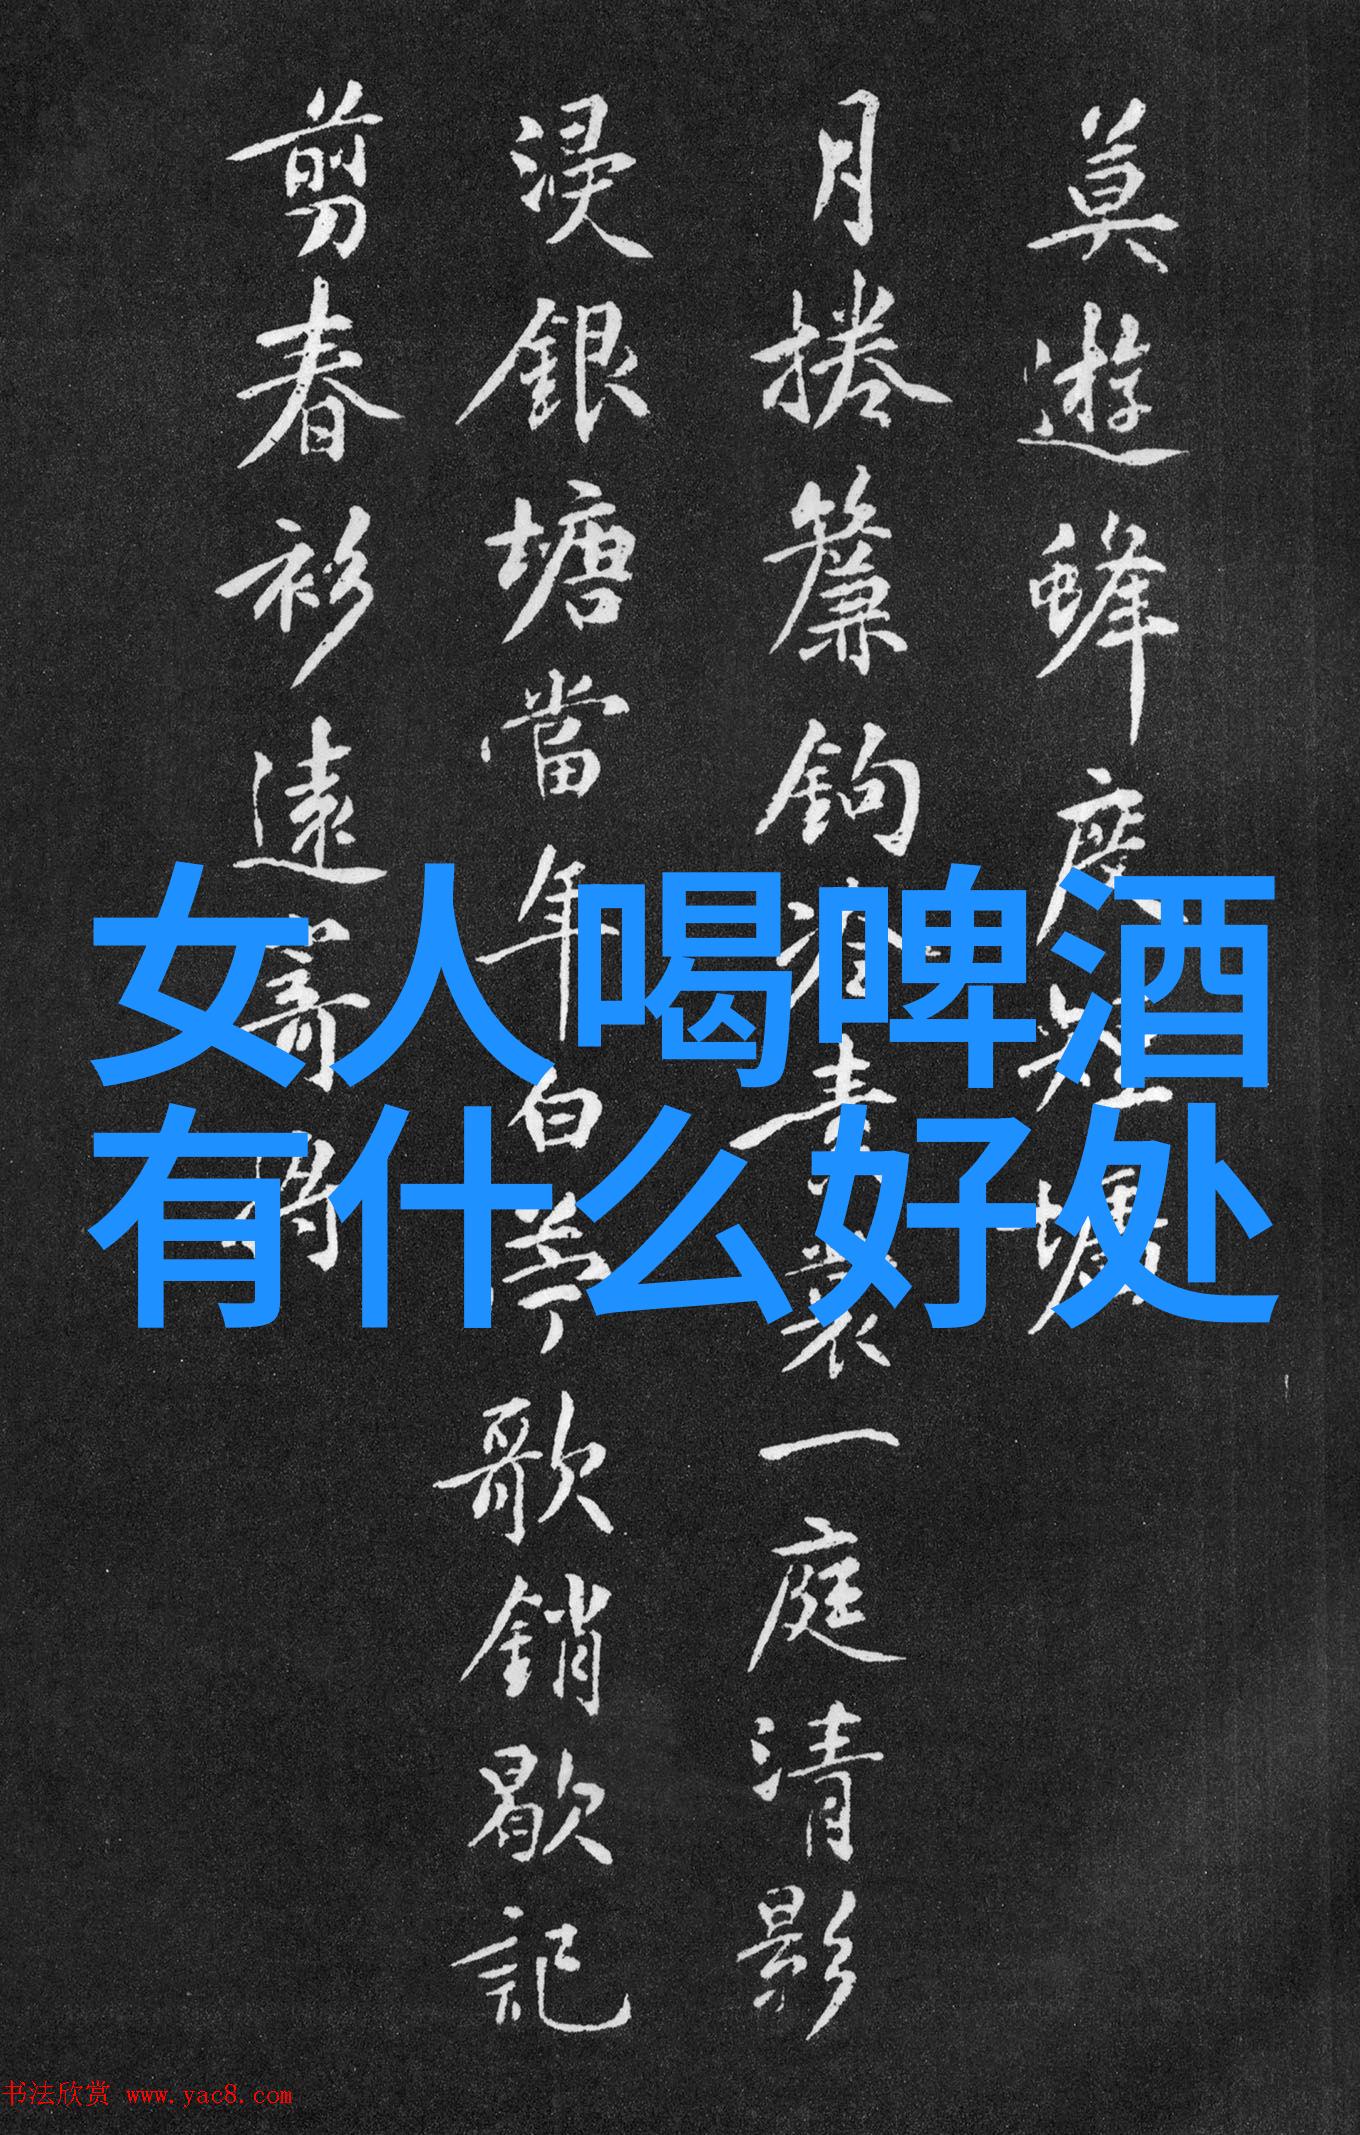 莫遊蜂度短墉
月捲簾鉤
一庭清影
浸銀塘當年白苧歌銷歇記
剪春衫遠寄
女人喝啤酒
有什么好处
书法欣赏 www.yac8.com